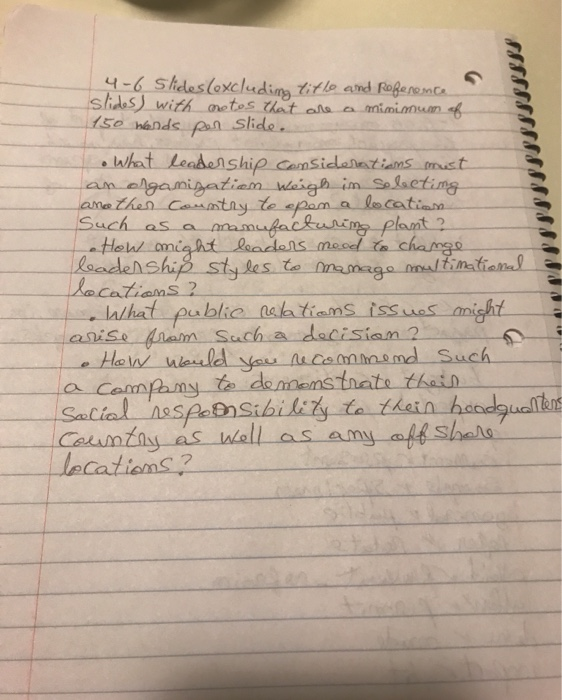 4-6 Slides (excluding title and Reference
slides) with notes that are a minimum of
150 words per slide.
• What leadership considerations must
an organization weigh in selecting
another country to open a location
Such as a manufacturing plant?
• How might leaders need to change
leadership styles to manage multinational
locations?
• What public relations issues might
arise from such a decision?
• How would you recommend Such
a company to demonstrate their
Social responsibility to their headquarters
Country as well as any offshore
locations?